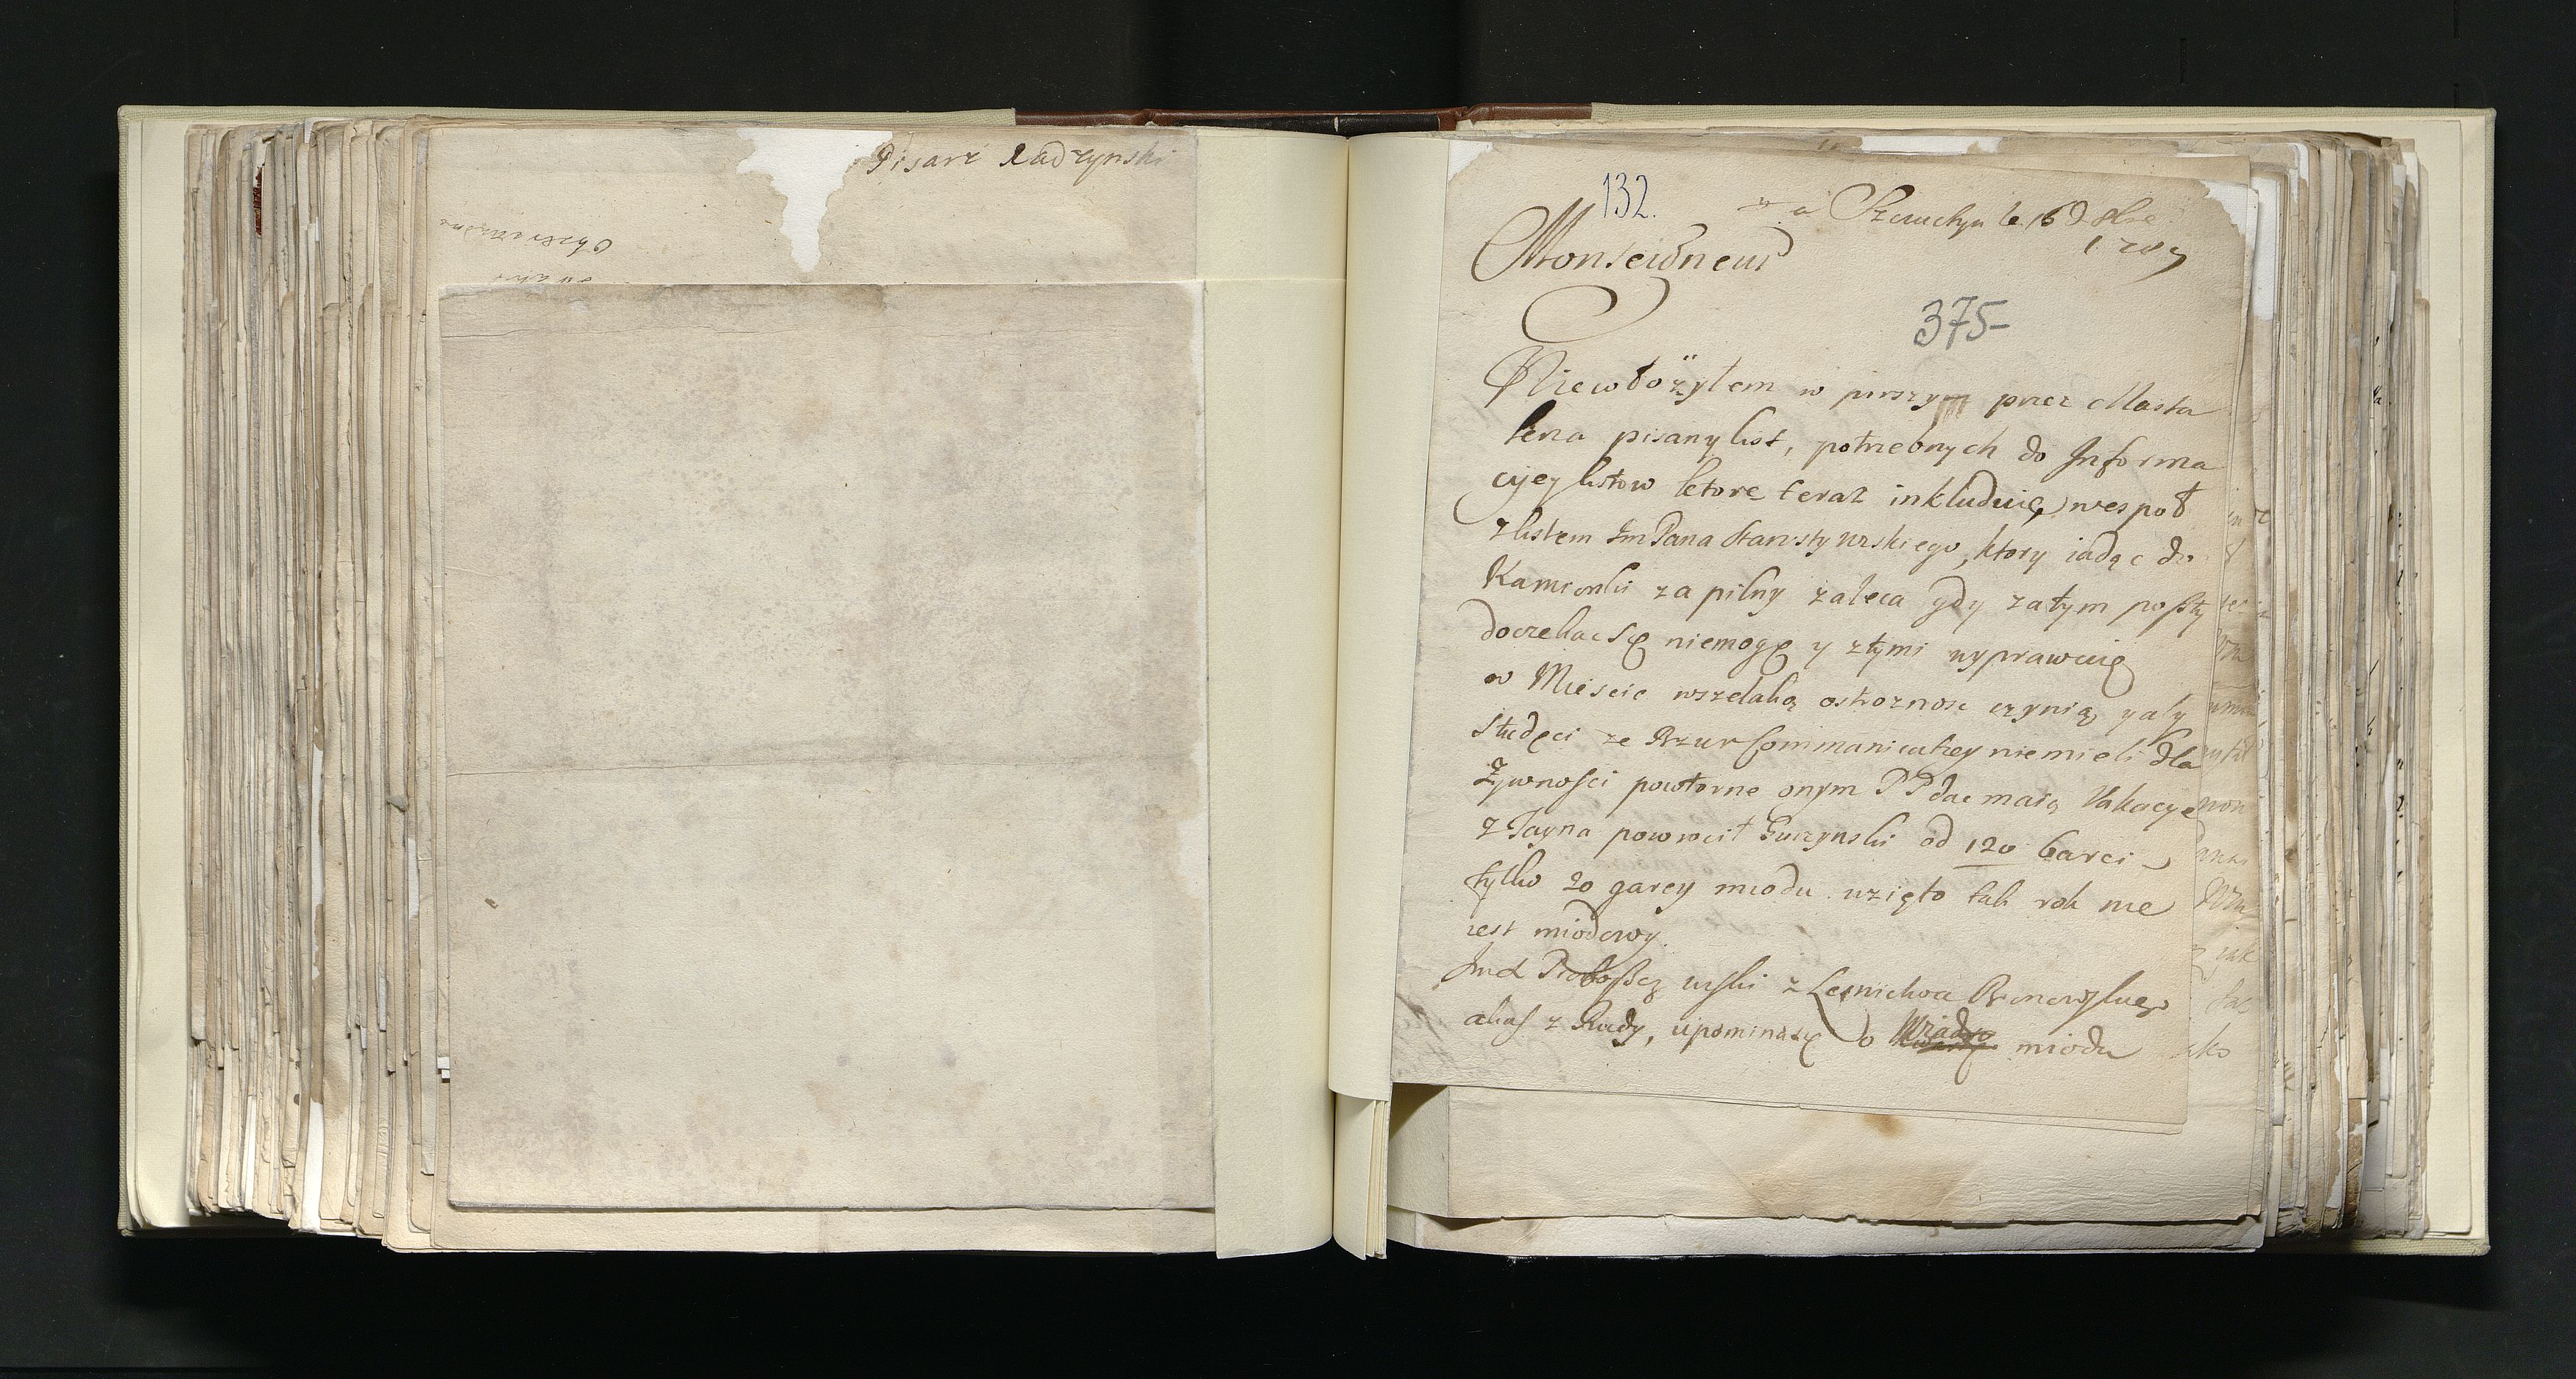 Pisarz Radzynski
132.
a Szczuchyn le 16 d 8bre
1709
Monseigneur
375
Niewłożyłem w pirszym przez Masta
lerza pisany list, potrzebnych do Informa
cyjey listow ktore teraz inkluduię wespoł
z listem Im Pana Starosty urskiego, ktory iadąc do
Kamionki za pilny zaleca gdy zatym poszty
doczekac się niemogę y ztymi wyprawuię
w Miescie wszelaką ostroznosc czynią, y aby
studęci ze Rzur Communicatiey niemieli dla
Zywnosci powtorne onym PP dac maią Vakacye
z Tayna powrocił Guczynski od 120 barci
tylko 20 garcy miodu wzięto tak rok nie
iest miodowy.
Imć Proboszcz urski z Lesnictwa
alias z Rudy, upomina się o miodu